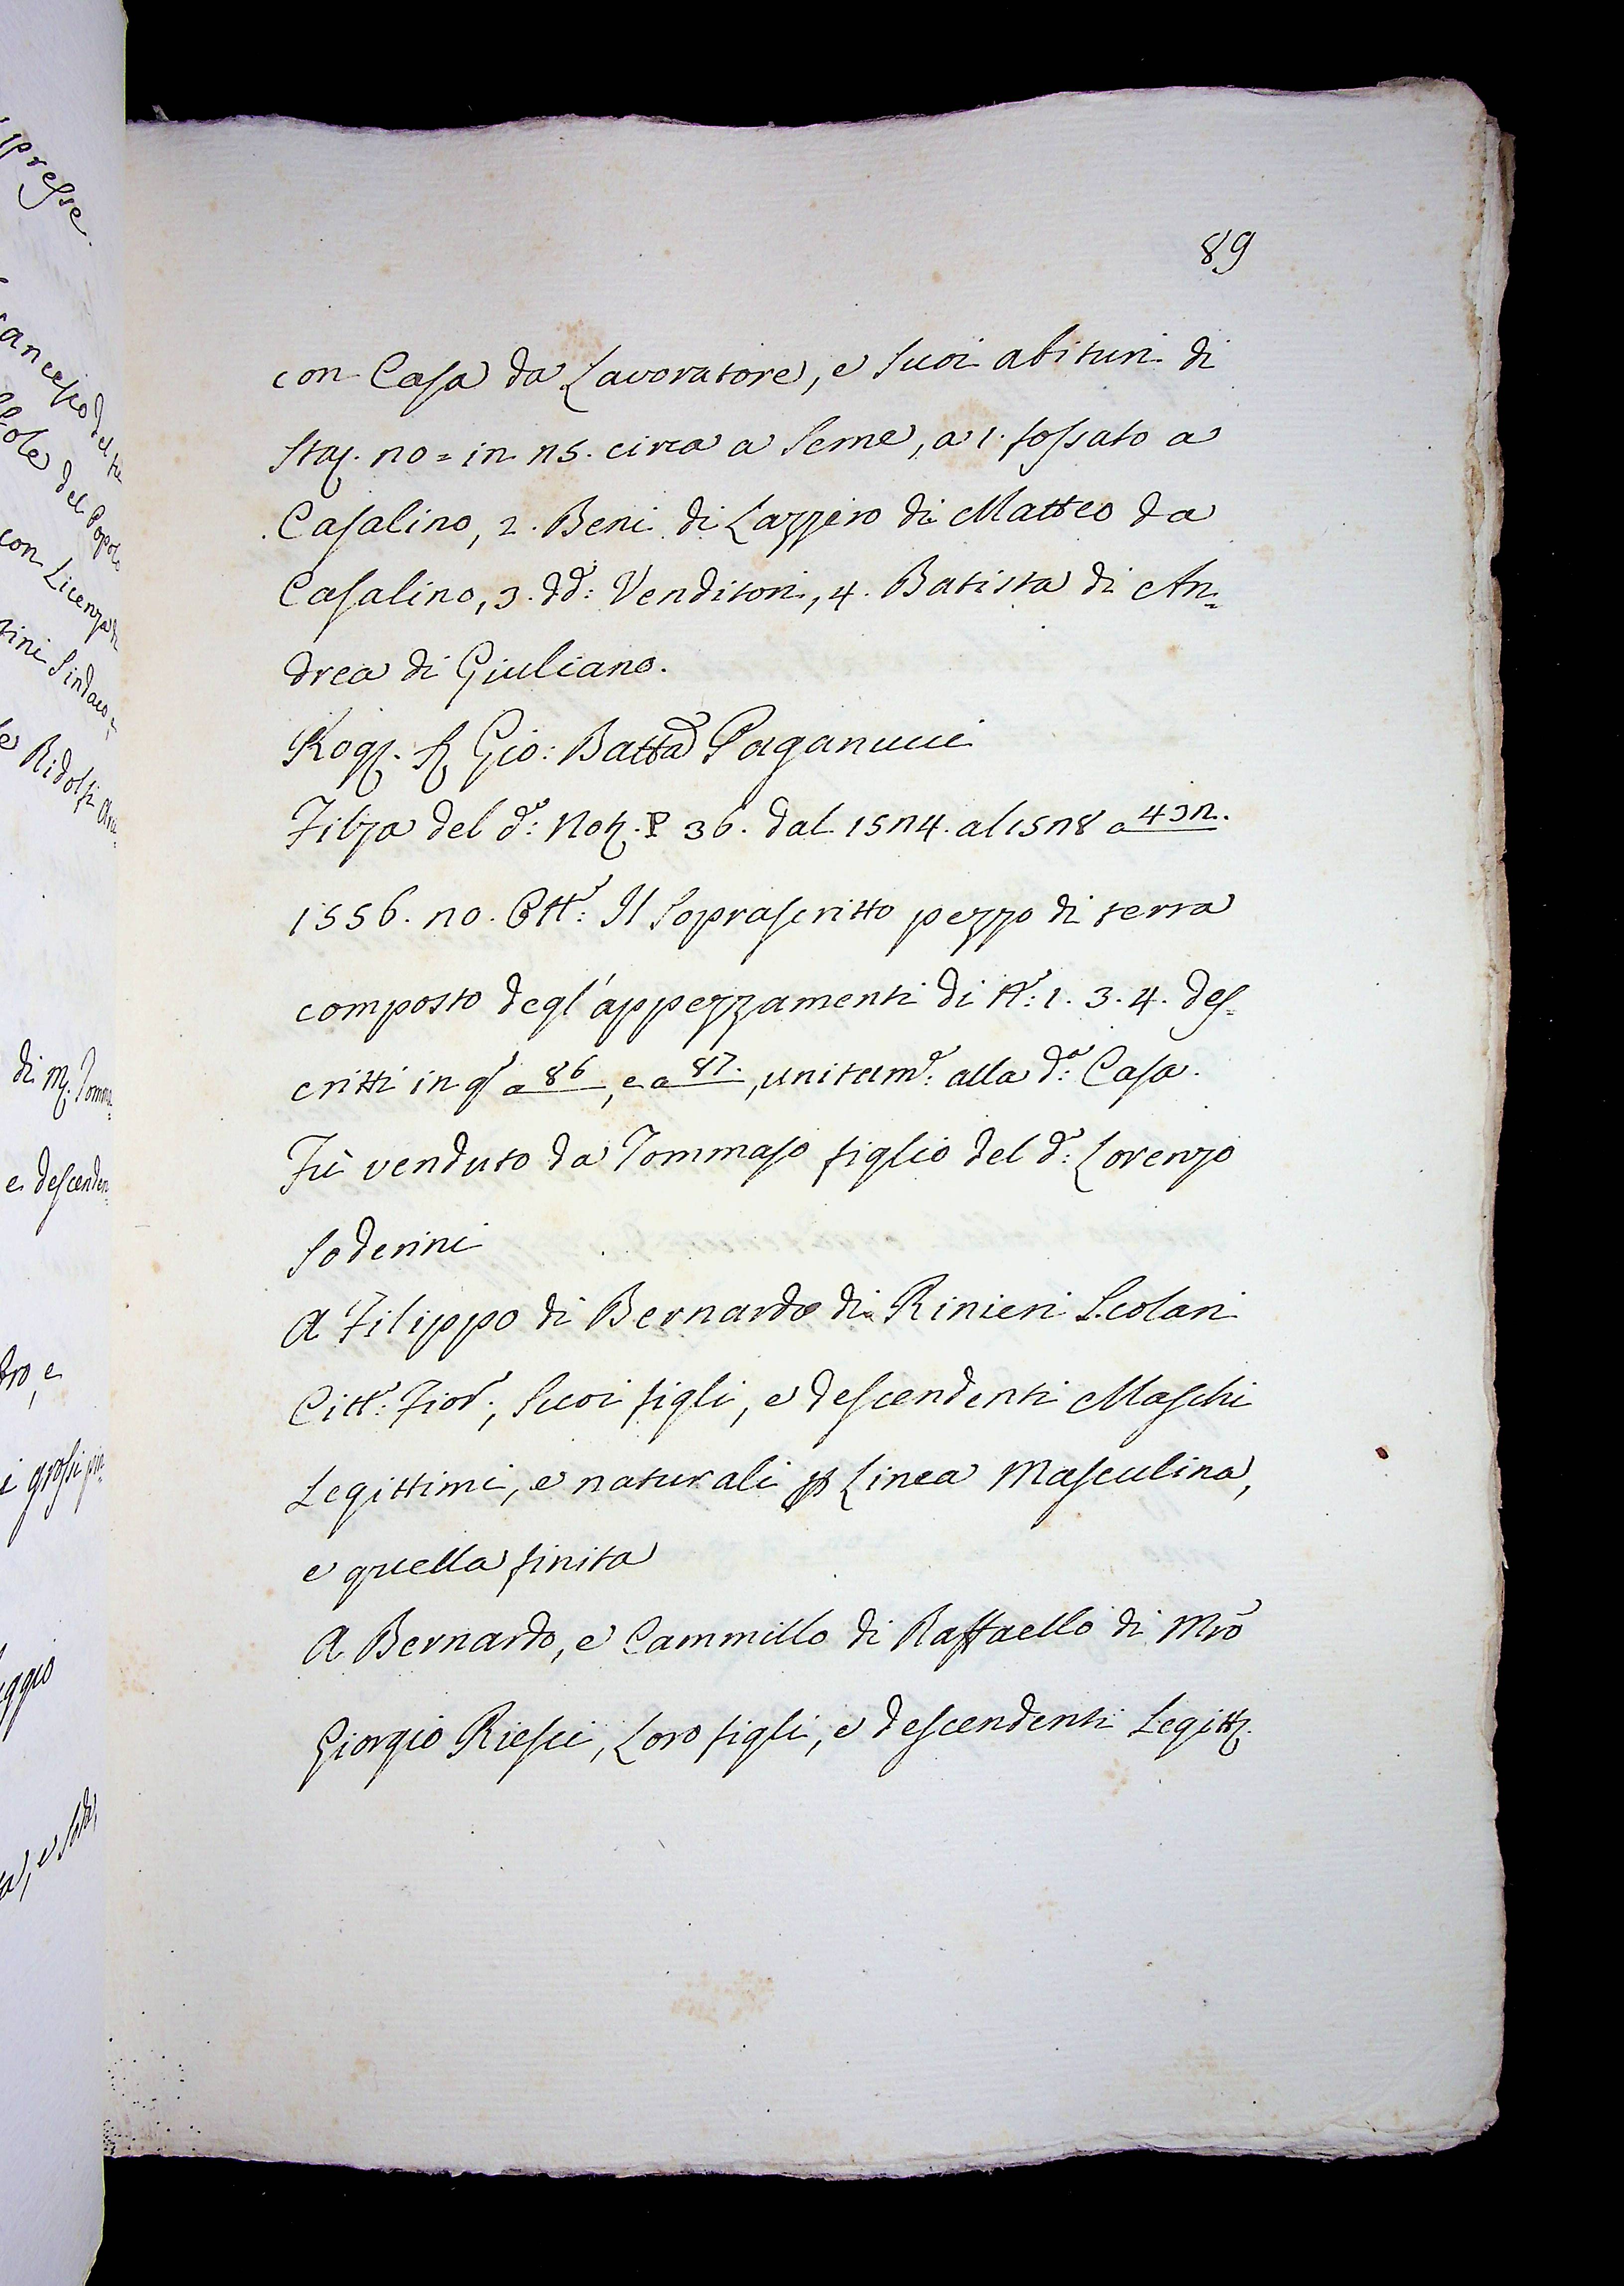 presse
89
con Casa da Lavoratore, e suoi abituri di
Staj. 20 = in 25. circa a Seme, a 1. fossato a
Casalino, 2. Beni di Lazzero di Matteo da
Casalino, 3. dd:i Venditori, 4. Batista di An=
drea di Giuliano.
Rog. Gio: Batta Paganucci
Filza del d:o Not. P 36. dal 1524. al 1528 a 432.
1556. 20. Ott:e Il Soprascritto pezzo di terra
composto degl'appezzamenti di n:o 1. 3. 4. des=
critti in q.o a 86, e a 87., unitam:e alla d:a Casa.
Fù venduto da Tommaso figlio del d:o Lorenzo
Soderini
A Filippo di Bernardo di Rinieri Scolari
Citt:o Fior:o, suoi figli, e descendenti Maschi
Legittimi, e naturali p Linea Masculina,
e quella finita
A Bernardo, e Cammillo di Raffaello di Mro
Giorgio Riesci, Loro figli, e descendenti Legitt.
del Popolo
con Licenza
Sindaco
Ridolfi
di M. Tomma=
e descenden=
i grossi